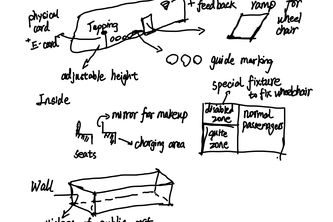 + feedback
ramp for
wheel
chair
physical
card
+E-card
Tapping
guide marking
adjustable height
special fixture
to fix wheelchair
Inside
mirror for makeup
charging area
seats
disabled
zone
quite
zone
normal
passengers
Wall